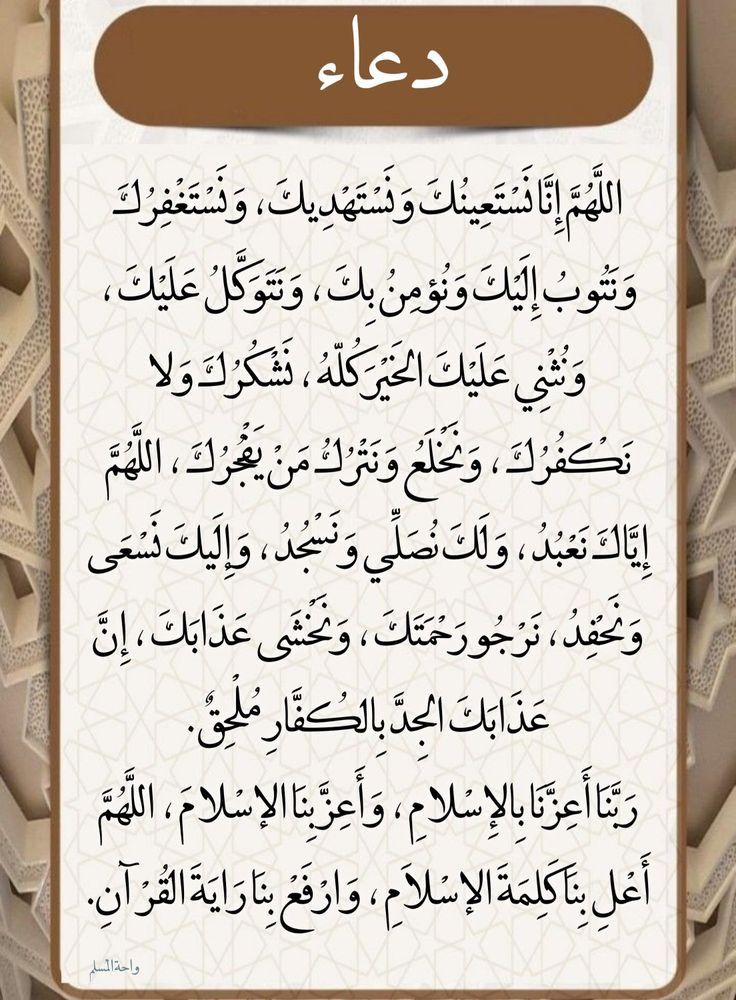 دعاء
اللَّهُمَّ إِنَّا نَسْتَعِينُكَ وَنَسْتَهْدِيكَ، وَنَسْتَغْفِرُكَ
وَنَتُوبُ إِلَيْكَ وَنُؤمِنُ بِكَ، وَنَتَوَكَّلُ عَلَيْكَ،
وَنُثْنِي عَلَيْكَ الخَيْرَ كُلَّهُ، نَشْكُرُكَ وَلا
نَكْفُرُكَ، وَنَخْلَعُ وَنَتْرُكُ مَنْ يَفْجُرُكَ، اللَّهُمَّ
إِيَّاكَ نَعْبُدُ، وَلَكَ نُصَلِّي وَنَسْجُدُ، وَإِلَيكَ نَسْعَى
وَنَحْفِدُ، نَرْجُو رَحْمَتَكَ، وَنَخْشَى عَذَابَكَ، إِنَّ
عَذَابَكَ الجِدَّ بِالكُفَّارِ مُلْحِقٌ.
رَبَّنَا أَعِزَّنَا بِالإِسْلامِ، وَأَعِزَّ بِنَا الإسْلامَ، اللَّهُمَّ
أَعْلِ بِنَا كَلِمَةَ الإسْلاَمِ، وَارْفَعْ بِنَا رَايَةَ القُرْآنِ.
واحة المسلم